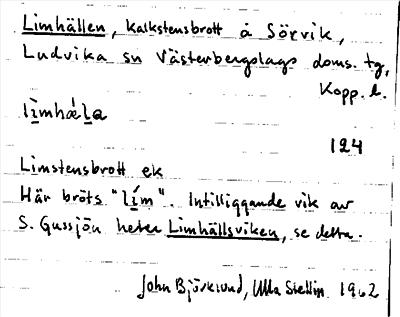 Limhällen, kalkstensbrott å Sörvik,
Ludvika sn Västerbergslags doms. tg,
Kopp. l.
lìmhæ̀la
124
Limstensbrott ek
Här bröts "lím". Intilliggande vik av
S. Gussjön heter Limhällsviken, se detta.
John Björklund, Ulla Stellin 1962